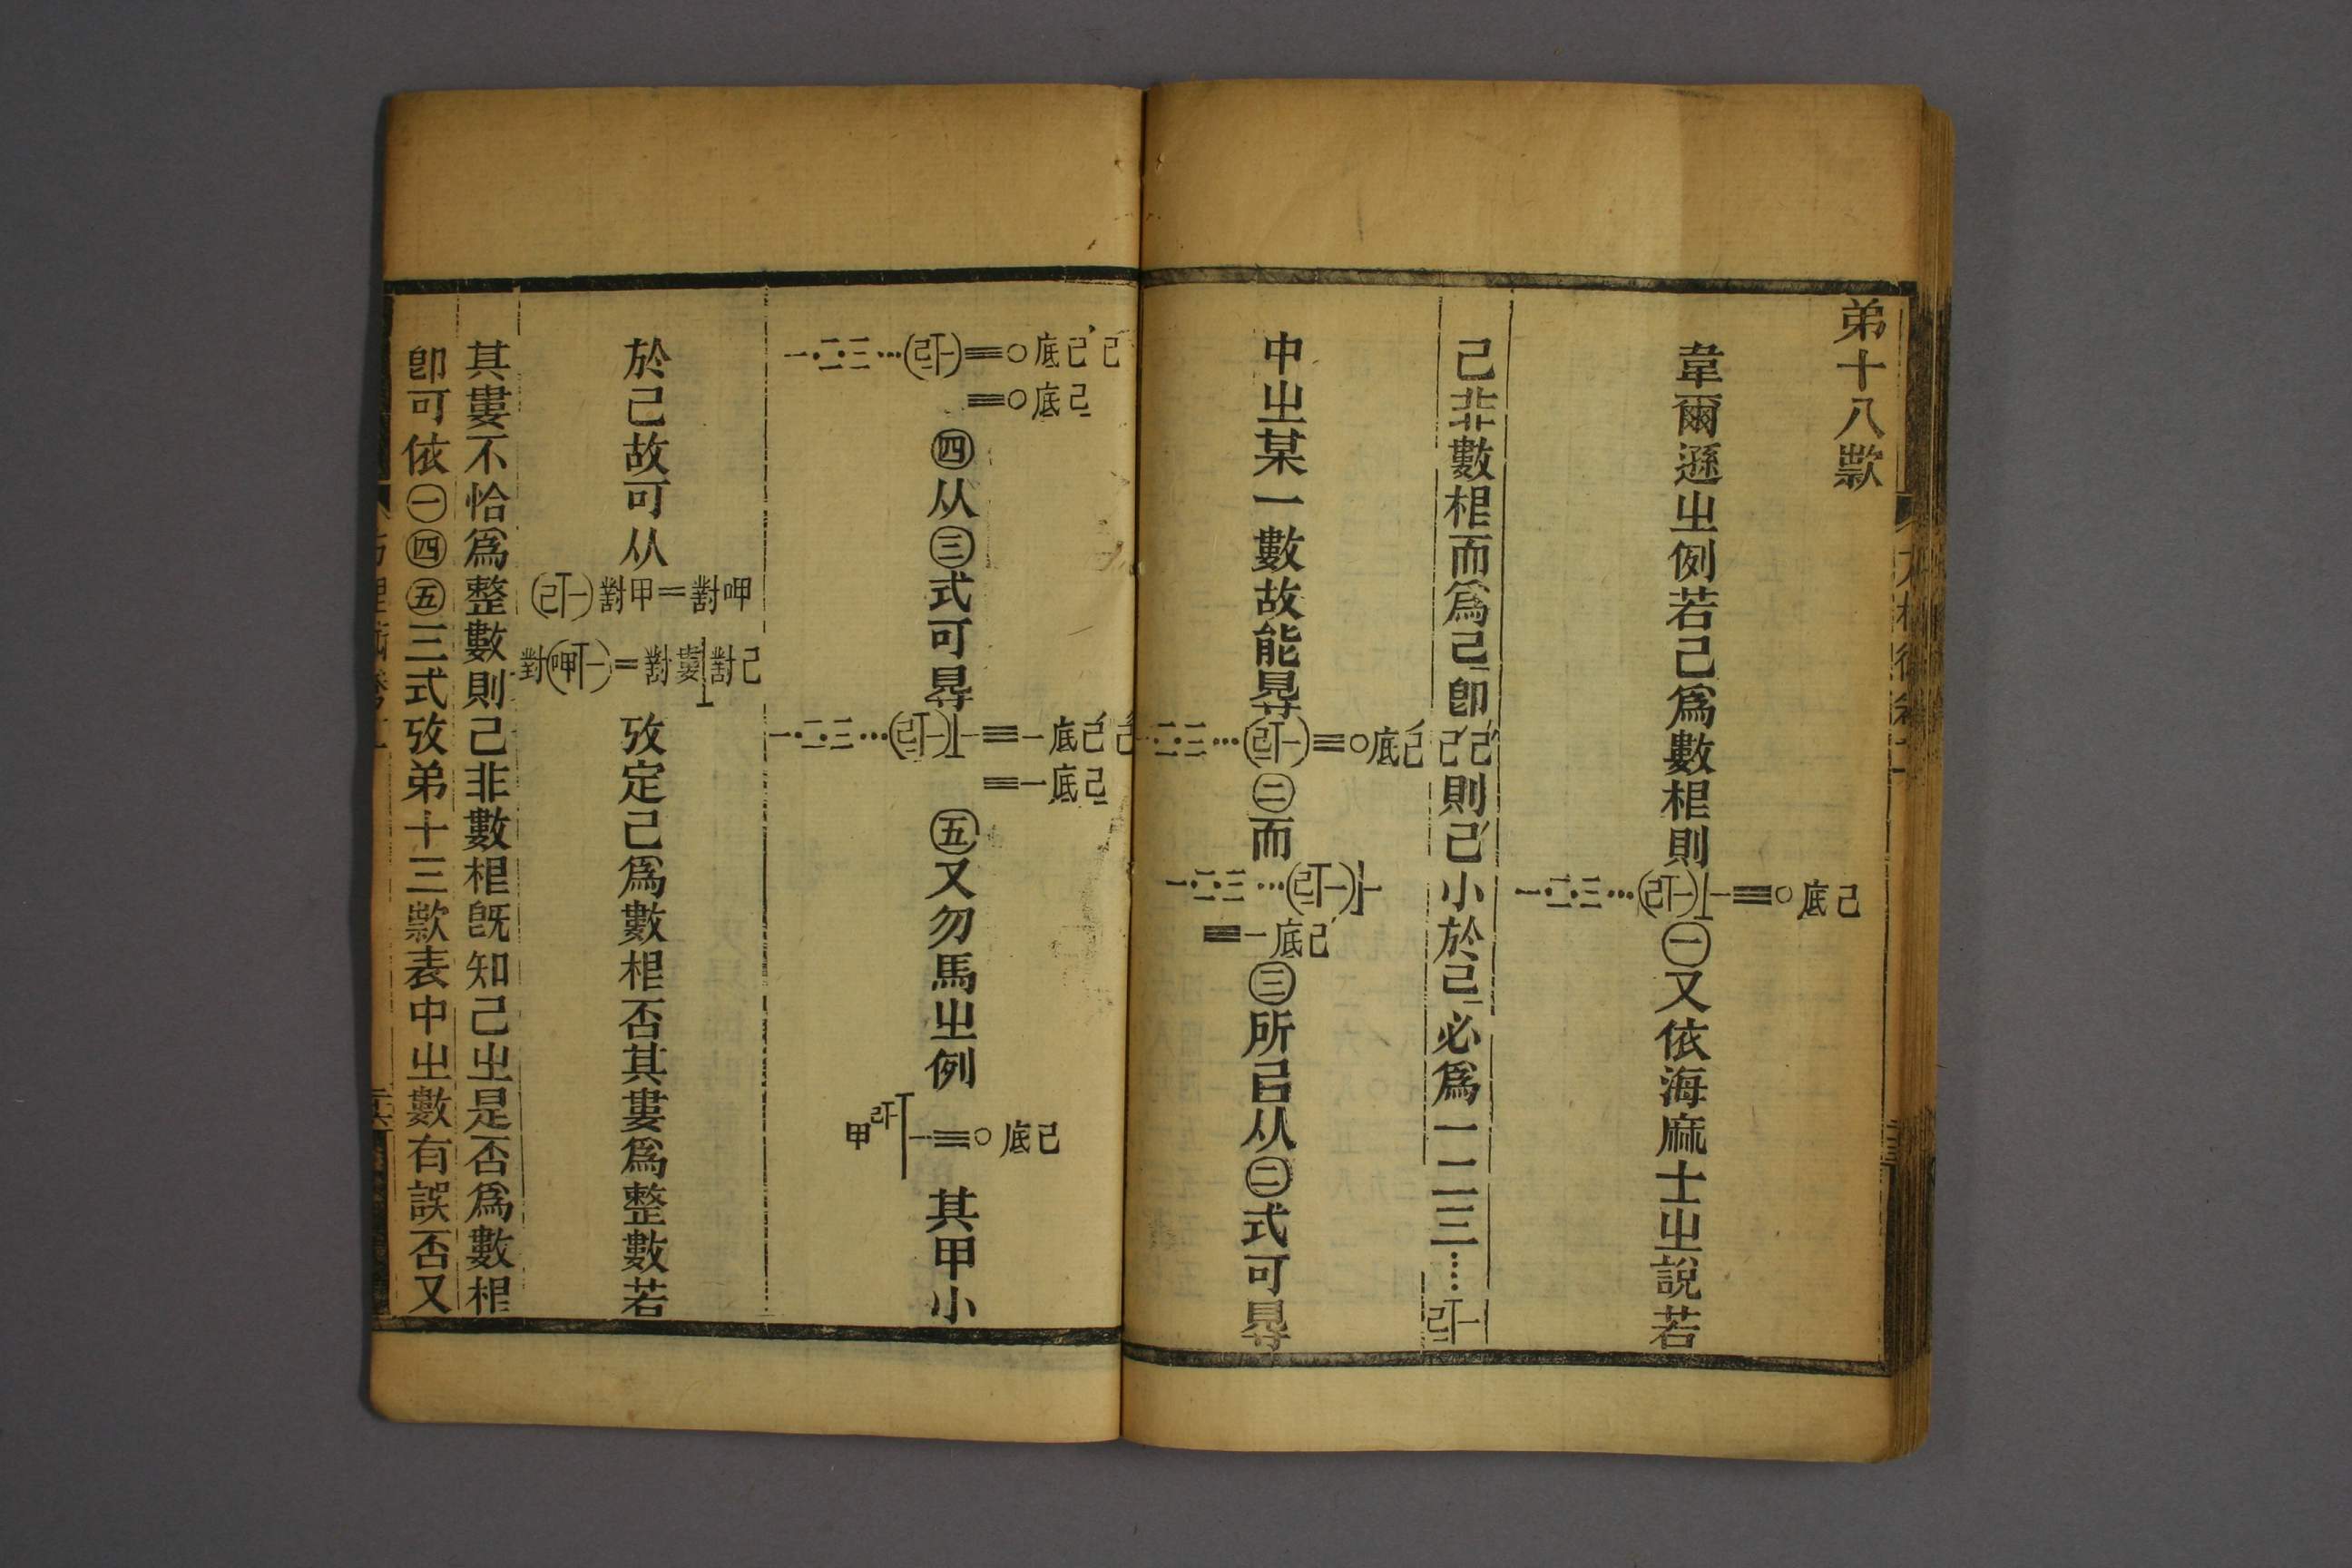 弟十八款
韋爾遜㞢例若己爲數根則
一·二·三…(己丅一)⊥一≡〇底己
㊀又依海麻士㞢說若
己非數根而爲己卽己己則己小於己必爲一二三…己丅一
中㞢某一數故能㝵
一·二·三…(己丅一)≡〇底己
㊁而
一·二·三…(己丅一)⊥一
≡一底己
㊂所㠯从㊁式可㝵
一·二·三…(己丅一)≡〇底己己
≡〇底己
㊃从㊂式可㝵
一·二·三…(己丅一)⊥一≡一底己己
≡一底己
㊄又勿馬㞢例
甲己丅一丅一≡〇底己
其甲小
於己故可从
(己丅一)對甲=對呷
對(呷丅一)=對婁⊥對己
攷定己爲數根否其婁爲整數若
其婁不恰爲整數則己非數根旣知己㞢是否爲數根
卽可依㊀㊃㊄三式攷弟十三款表中㞢數有誤否又